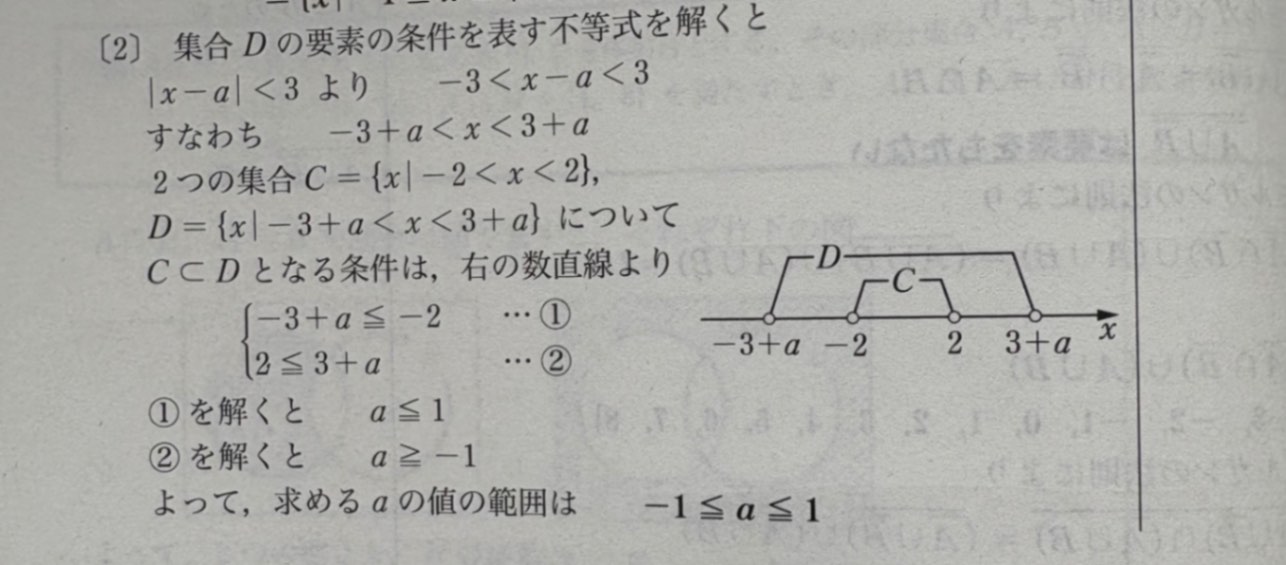 〔2〕 集合Dの要素の条件を表す不等式を解くと
|x−a|<3 より −3<x−a<3
すなわち −3+a<x<3+a
2つの集合C={x|−2<x<2},
D={x|−3+a<x<3+a} について
C⊂Dとなる条件は，右の数直線より
−3+a≦−2 …①
2≦3+a …②
①を解くと a≦1
②を解くと a≧−1
よって，求めるaの値の範囲は −1≦a≦1
D
C
−3+a −2 2 3+a x